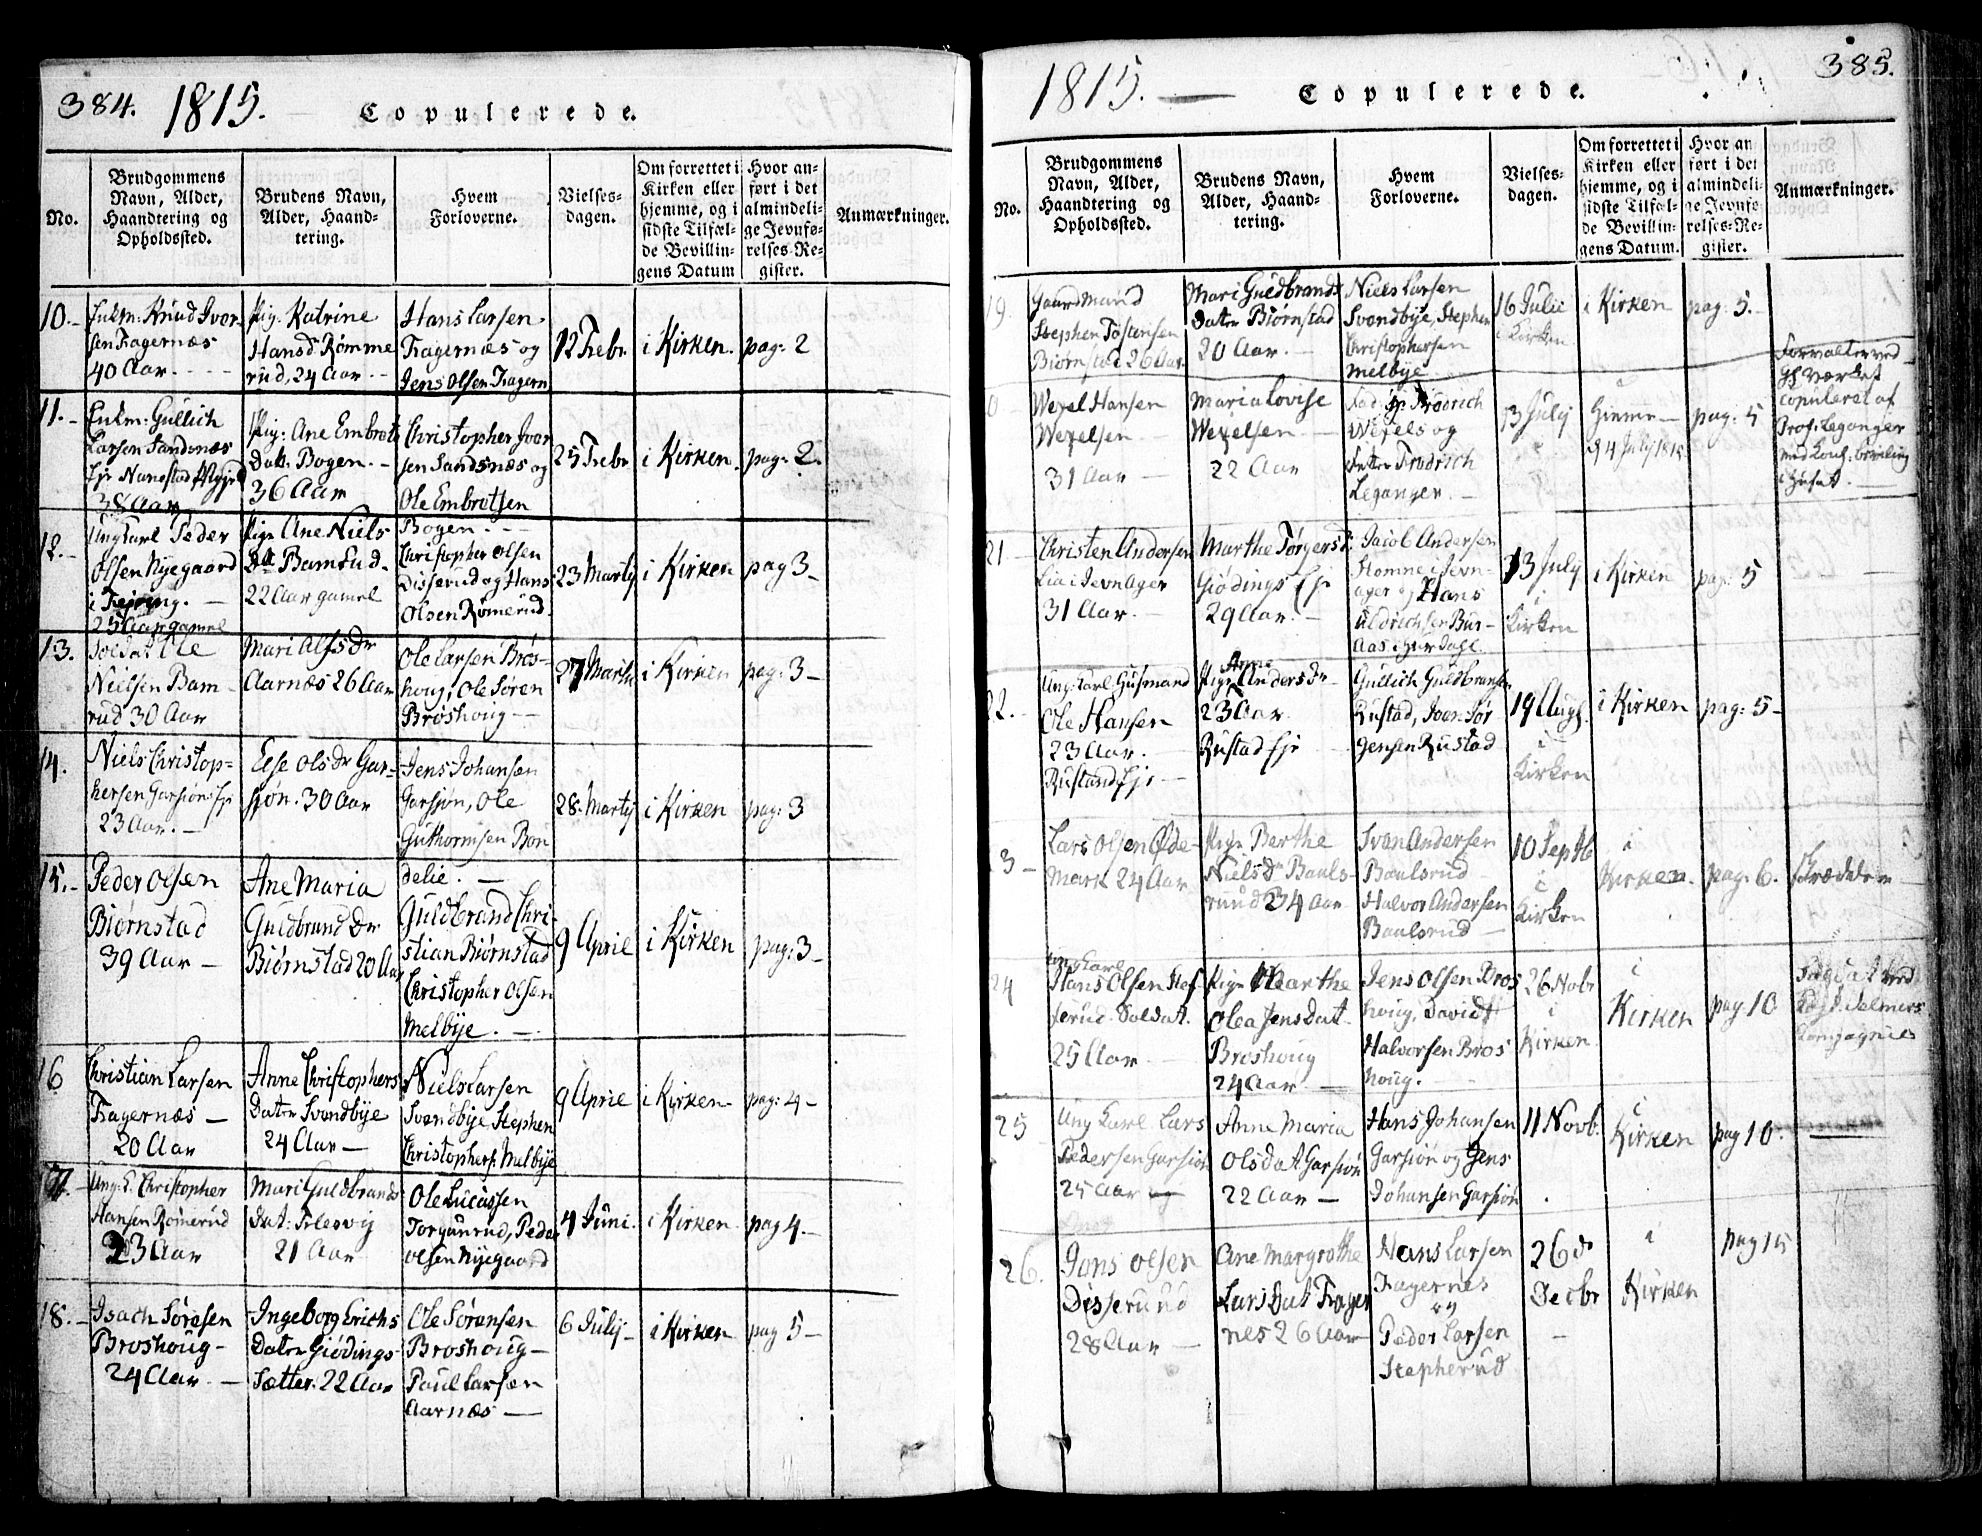 384. 1815. Copulerede.
No.
Brudgommens Navn, Alder, Haandtering og Opholdssted.
Brudens Navn, Alder, Haandtering.
Hvem Forloverne.
Vielsesdagen.
Om forrettet i Kirken eller hjemme, og i sidste Tilfælde Bevillingens Datum
Hvor anført i det almindelige Jevnførelses-Register.
Anmærkninger.
10.
Enkm: Knud Ivor
sen Fragernæs
40 Aar
Pig: Katrine
Hansd: Rømme
rud, 24 Aar
Hans Larsen
Fragernæs og
Jens Olsen Fragern
12 Febr.
i Kirken.
pag: 2
11.
Enkm: Gullich
Larsen Sandsnæs
38 Aar
Pig: Ane Embrets
Dat: Bogen.
36 Aar
Christopher Ivor
sen Sandsnæs og
Ole Embretsen
Bogen.
25 Febr
i Kirken.
pag: 2.
12.
Ung Karl Peder
Olsen Nyegaard
25 Aar gamel
Pige Ane Niels
Dtr Bamrud
22 Aar gamel
Christopher Olsen
Disserud og Hans
Olsen Rømerud.
23 Marty
i Kirken
pag 3
13.
Soldat Ole
Nielsen Bam
rud 30 Aar
Mari Alfs Dr
Aarnæs 26 Aar
Ole Larsen Bros-
houg, Ole Søren
Brøshoug
27 Marty
i Kirken
pag: 3
14.
Niels Christop-
hersen Garsiøn: Eje
23 Aar.
Else Ols Dr Gar-
sjøn. 30 Aar
Jens Johansen
Garsjøn, Ole
Guthormsen Bon
delie.
28. Marty
i Kirken
pag: 3
15.
Peder Olsen
Biørnstad
39 Aar
Ane Maria
Guldbrand Dr
Biørnstad 20 Aar
Guldbrand Chri-
stian Biørnstad
Christopher Olsen
Melbye.
9 April
i Kirken
pag: 3
16
Christian Larsen
Fragernæs
20 Aar
Anne Christophers
Dater Svendbye
24 Aar
Niels Larsen
Svendbye Stephen
Christophers: Melbye
9 April
i Kirken
pag: 4
17.
Ung: K. Christopher
Hansen Rømerud
23 Aar
Mari Guldbrands
Dat: Flesvig
21 Aar
Ole Lucassen
Torgunrud, Peder
Olsen Nyegaard
4 Juni.
i Kirken
pag 4.
18.
Isach Søresen
Broshoug
24 Aar.
Ingeborg Erichs
Dater Giødings
Sætter. 22 Aar
Ole Sørensen
Broshoug
Paul Larsen
Aarnæs
6 July
i Kirken
pag 5
1815. Copulerede. 385.
No.
Brudgommens Navn, Alder, Haandtering og Opholdssted.
Brudens Navn, Alder, Haandtering.
Hvem Forloverne.
Vielsesdagen.
Om forrettet i Kirken eller hjemme, og i sidste Tilfælde Bevillingens Datum.
Hvor anført i det almindelige Jevnførelses-Register.
Anmærkninger.
19.
Gaardmand
Stephen Tostensen
Biørnstad 26 Aar
Mari Guldbrands
Dater Biørnstad
20 Aar.
Niels Larsen
Svendbye, Stephen
Christophersen
Melbye
16 Julii
i Kirken
i Kirken
pag: 5.
Wexel Hansen
Wexelsen
31 Aar
Maria Lovise
Wexelsen
22 Aar
Fredrich
Wexels og
Fredrich
Leganger.
13 July
Hiemme
pag: 5
Forvalter ved
Værket
copuleret af
Prof: Leganger
i Huset.
21
Christen Andersen
Lia i Jevnager
31 Aar.
Marthe Torgersd:
Giødings Eje
29 Aar.
Jacob Andersen
Homme i Jevn-
ager og Hans
Uldrichsen Bur-
aas i Hurdahl
13 July
i
Kirken
i Kirken
pag: 5
22.
Ung Karl Husmand
Ole Hansen
23 Aar.
Rustand Eje
Pige Anne Anders Dr
23 Aar.
Rustad Eje
Gullich Guldbransen
Rustad, Iver Jør
gensen Rustad
19 Augs.
i
Kirken
i Kirken
pag: 5
3
Lars Olsen Øde-
Mark 24 Aar
Pige Berthe
Niels Dr Bauls-
ruud 34 Aar
Sven Andersen
Baulsrud
Halvor Andersen
Baulsrud
10 Septb
i
Kirken
i
Kirken.
pag: 6.
24
Ung Karl
Hans Olsen Stef
ferud. Soldat.
25 Aar
Pige Marthe
Olea Jens Dat
Broshoug
24 Aar
Jens Olsen Bros
houg, David
Halvorsen Bros
houg.
26 Nobr
i
Kirken
i
Kirken
pag 10
Soldat ved
Selmers
Compagnie
25
Ung Karl Lars
Pedersen Garsiøn
25 Aar
Anne Maria
Olsdat Garsiøn
22 Aar
Hans Johansen
Garsiøn og Jens
Johansen Garsiøn
11 Novb.
i
Kirken
pag 10.
26.
Jens Olsen
Disserud
28 Aar
Ane Margrethe
Lars Dat Frager
nes 26 Aar
Hans Larsen
Fragernes
og
Peder Larsen
Stepherud
26 de
Decbr
i
Kirken
pag 15